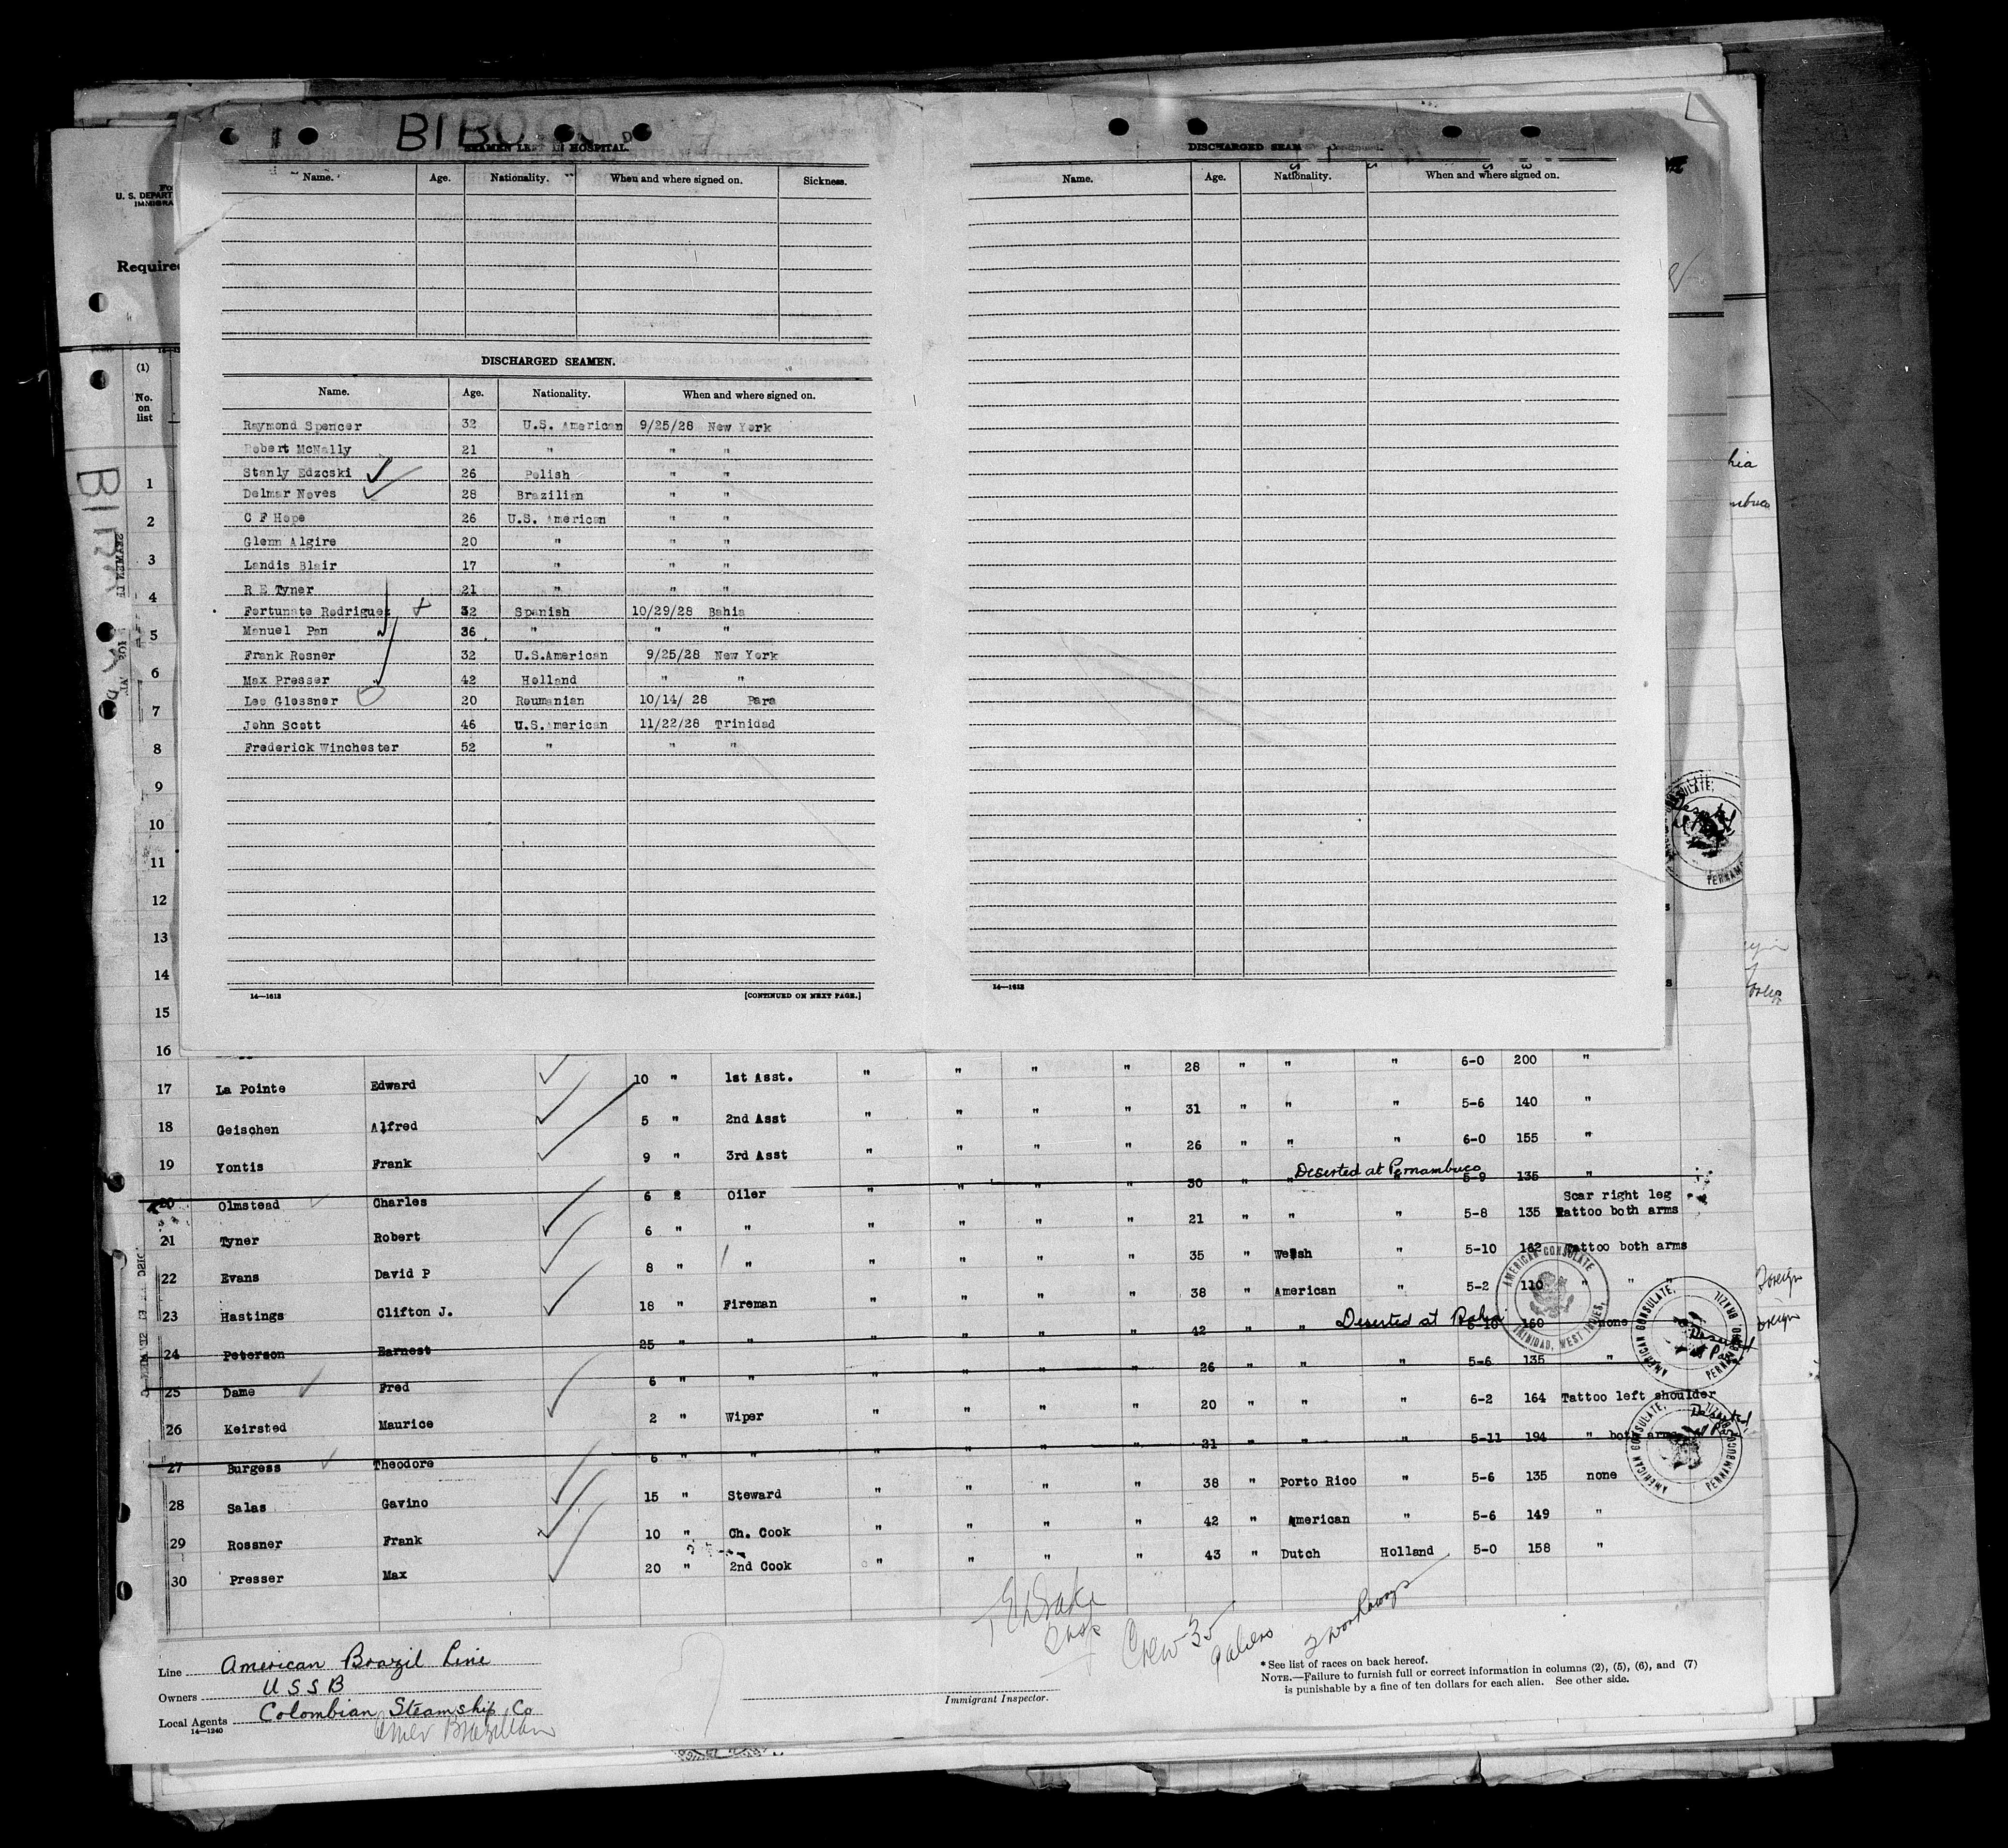 BIBO
SEAMEN LEFT IN HOSPITAL.
Name. Age. Nationality. When and where signed on. Sickness.
DISCHARGED SEAMEN.
Name. Age. Nationality. When and where signed on.
Raymond Spencer 32 U.S. American 9/25/28 New York
Robert McNally 21 " " "
Stanly Edzoski 26 Polish " "
Delmar Neves 28 Brazilian " "
C F Hope 26 U.S. American " "
Glenn Algire 20 " " "
Landis Blair 17 " " "
R E Tyner 21 " " "
Fortunate Rodriguez 32 Spanish 10/29/28 Bahia
Manuel Pan 36 " " "
Frank Rosner 32 U.S.American 9/25/28 New York
Max Presser 42 Holland " "
Leo Glossner 20 Roumanian 10/14/ 28 Para
John Scott 46 U.S.American 11/22/28 Trinidad
Frederick Winchester 52 " " "
14—1613 [CONTINUED ON NEXT PAGE.]
DISCHARGED SEAM
Name. Age. Nationality. When and where signed on.
14—1613
U. S. DEPART
IMMIGRA
Required
(1)
No.
on
list
1
2
3
4
5
6
7
8
9
10
11
12
13
14
15
16 6-0 200 "
17 La Pointe Edward 10 " 1st Asst. " " " " 28 " " "
5-6 140 "
18 Geischen Alfred 5 " 2nd Asst " " " " 31 " " "
6-0 155 "
19 Yontis Frank 9 " 3rd Asst " " " " 26 " "
Deserted at Pernambuco 5-9 135 "
20 Olmstead Charles 6 Oiler " " " " 30 " " "
Scar right leg
21 Tyner Robert 6 " " " " " " 21 " " " 5-8 135 Tattoo both arms
22 Evans David P 8 " " " " " " 35 " Welsh " 5-10 162 Tattoo both arms
23 Hastings Clifton J. 18 " Fireman " " " " 38 " American " 5-2 110 " " "
Deserted at Bahia
24 Peterson Earnest 25 " " " " " " 42 " " 5-10 160 none
25 Dame Fred 6 " " " " " " 26 " " " 5-6 135 "
26 Keirsted Maurice 2 " Wiper " " " " 20 " " " 6-2 164 Tattoo left shoulder
27 Burgess Theodore 6 " " " " " " 21 " " " 5-11 194 " both arms
28 Salas Gavino 15 " Steward " " " " 38 " Porto Rico " 5-6 135 none
29 Rossner Frank 10 " Ch. Cook " " " " 42 " American " 5-6 149 "
30 Presser Max 20 " 2nd Cook " " " " 43 " Dutch Holland 5-0 158 "
AMERICAN CONSULATE
TRINIDAD, WEST INDIES.
AMERICAN CONSULATE,
PERNAMBUCO, BRAZIL
AMERICAN CONSULATE,
PERNAMBUCO, BRAZIL
Deserted
Foreign
Crew 35
9 aliens
2 workaways
Line American Brazil Line
Owners U S S B
Local Agents Colombian Steamship Co
14—1240
Immigrant Inspector.
* See list of races on back hereof.
NOTE.—Failure to furnish full or correct information in columns (2), (5), (6), and (7)
is punishable by a fine of ten dollars for each alien. See other side.